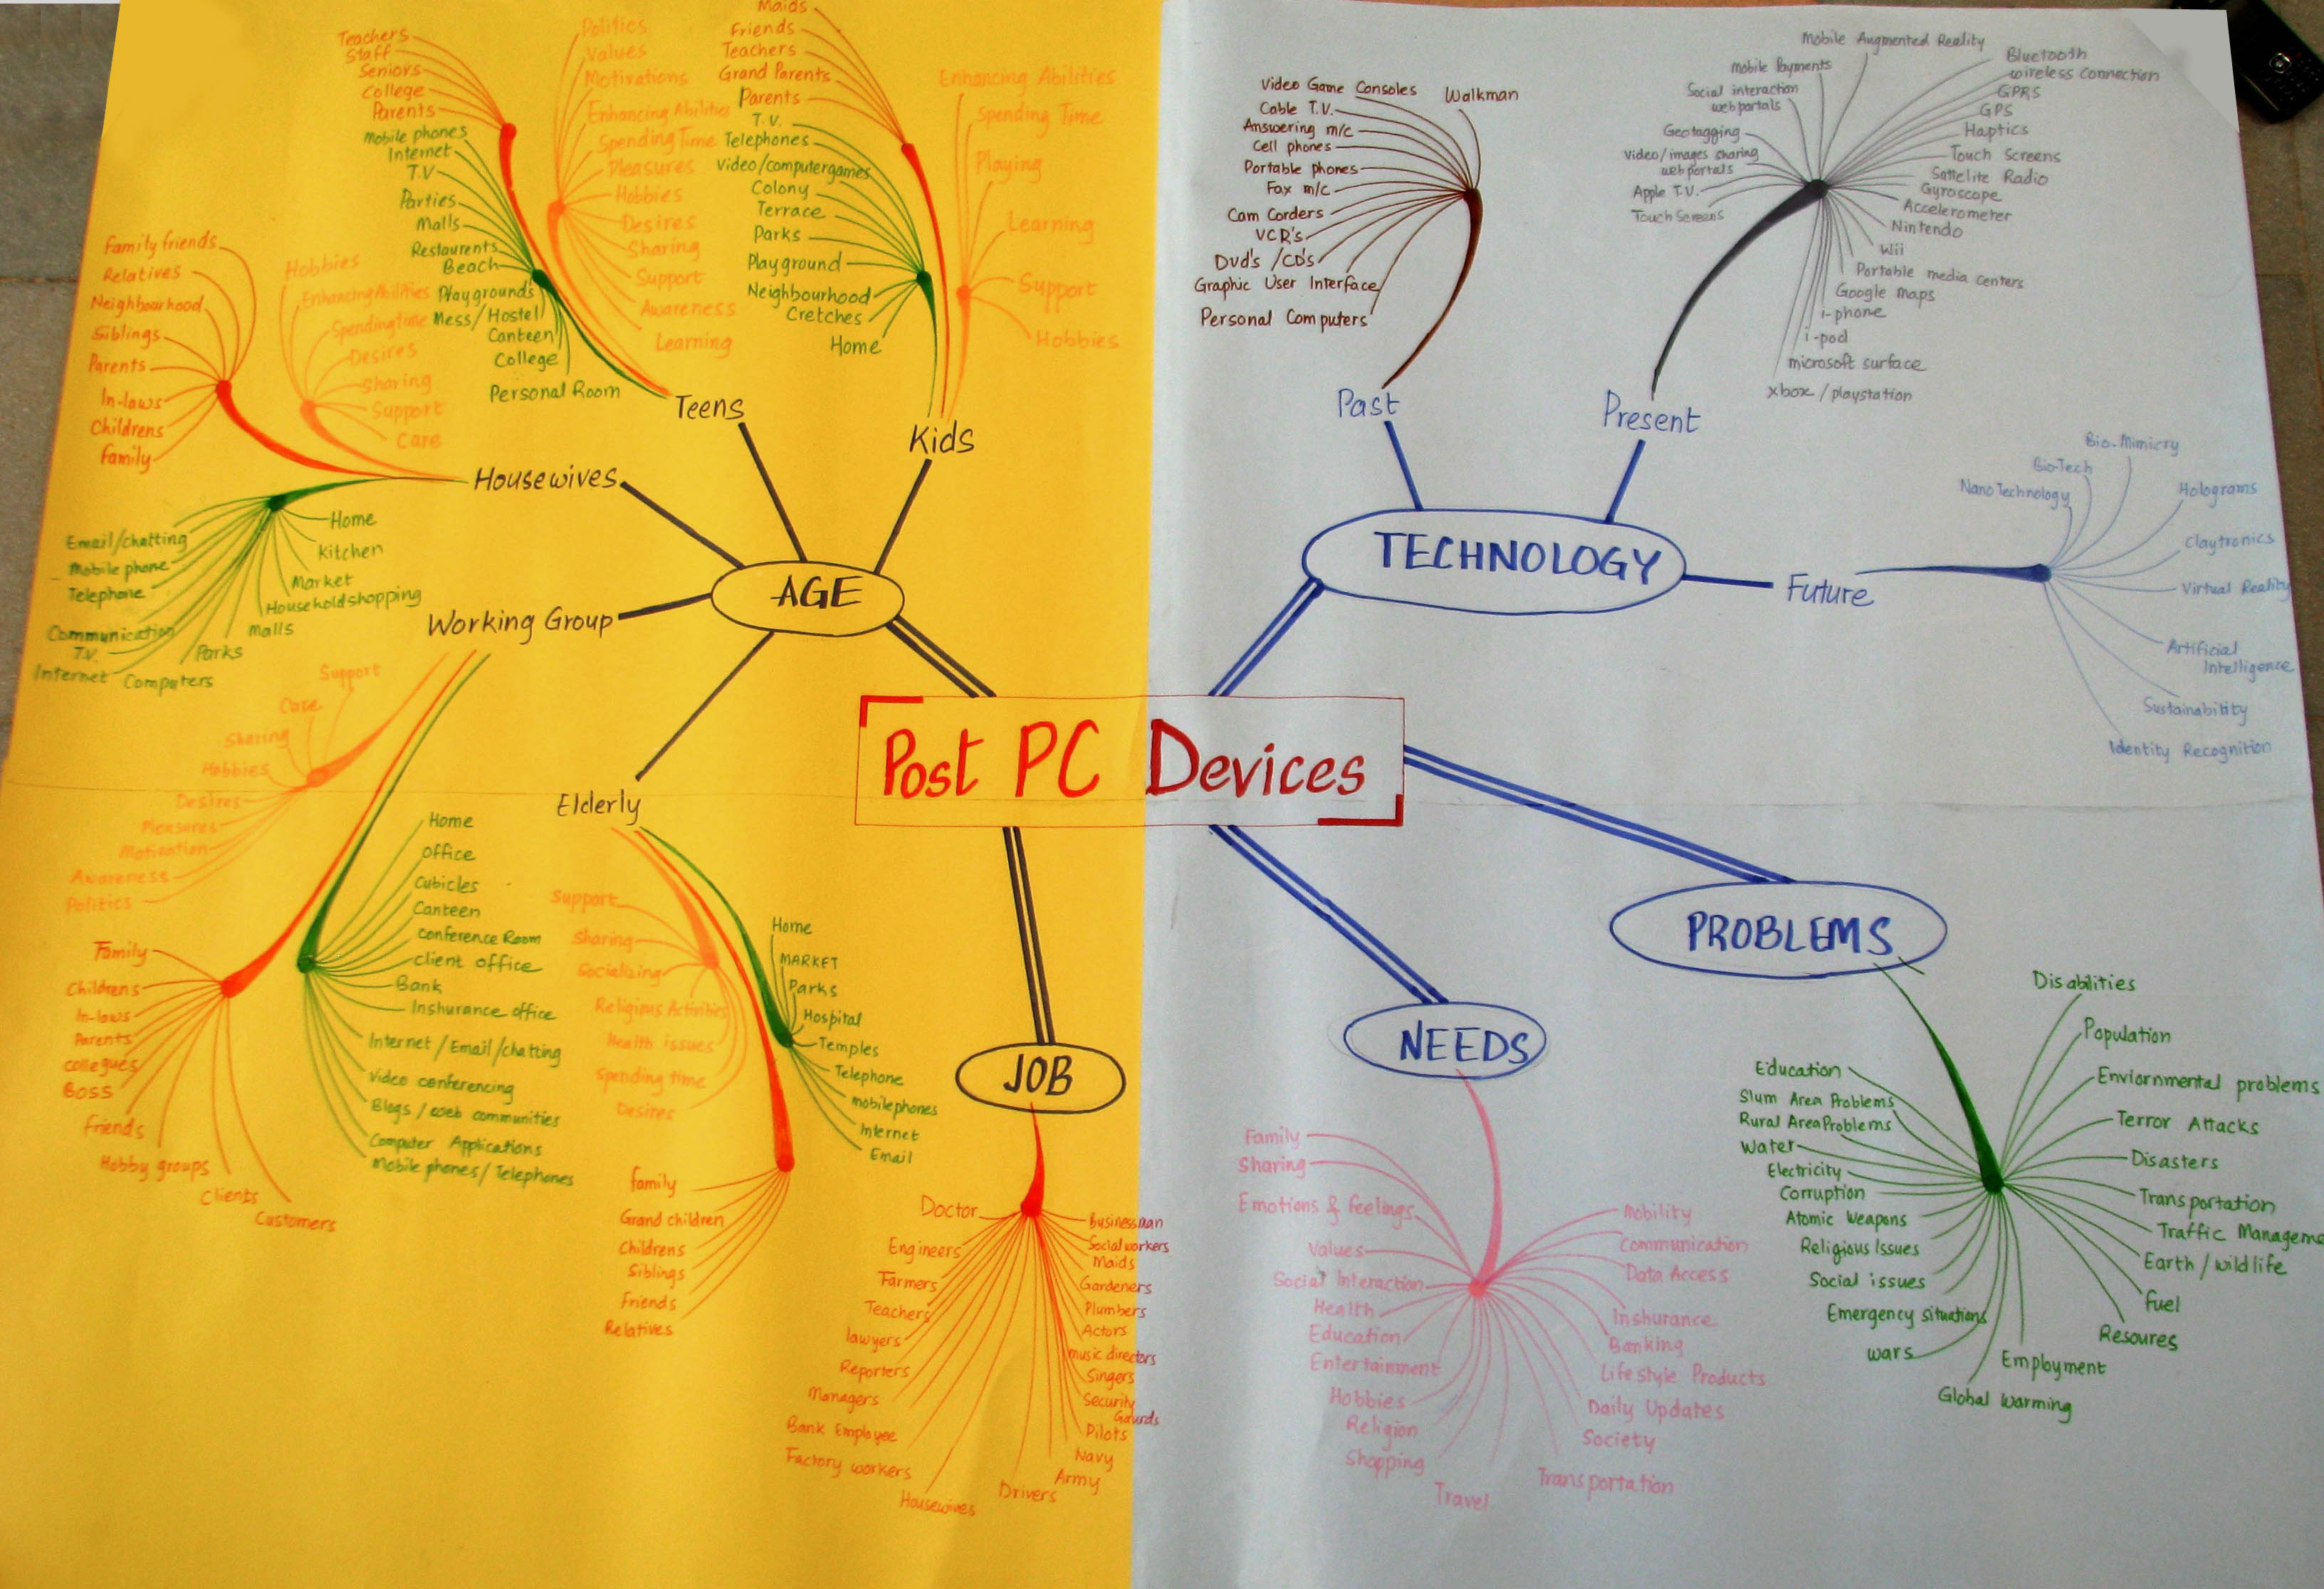 Post PC Devices
AGE
Teens
Teachers
Staff
Seniors
College
Parents
Mobile phones
Internet
T.V
Parties
Malls
Restaurents
Beach
Playground's
Mess/Hostel
Canteen
College
Personal Room
Politics
Values
Motivations
Enhancing Abilities
Spending Time
Pleasures
Hobbies
Desires
Sharing
Support
Awareness
Learning
Kids
Maids
Friends
Teachers
Grand Parents
Parents
T.V.
Telephones
Video/computergames
Colony
Terrace
Parks
Playground
Neighbourhood
Cretches
Home
Enhancing Abilities
Spending Time
Playing
Learning
Support
Hobbies
Housewives
Family friends
Relatives
Neighbourhood
Siblings
Parents
In-laws
Childrens
family
Hobbies
Enhancing Abilities
Spending time
Desires
Sharing
Support
Care
Home
Kitchen
Market
Household shopping
Malls
Parks
Email/chatting
Mobile phone
Telephone
Communication
T.V.
Internet Computers
Working Group
Support
Care
Sharing
Hobbies
Desires
Pleasures
Motivation
Awareness
Politics
Family
Childrens
In-laws
Parents
collegues
Boss
friends
Hobby groups
Clients
Customers
Home
Office
Cubicles
Canteen
Conference Room
client office
Bank
Inshurance office
Internet / Email /chatting
Video conferencing
Blogs / web communities
Computer Applications
Mobile phones/ Telephones
Elderly
Support
Sharing
Socializing
Religious Activities
Health issues
Spending time
Desires
Home
MARKET
Parks
Hospital
Temples
Telephone
mobilephones
Internet
Email
family
Grand children
Childrens
Siblings
Friends
Relatives
JOB
Doctor
Engineers
Farmers
Teachers
lawyers
Reporters
Managers
Bank Employee
Factory workers
Housewives
Drivers
Army
Navy
Pilots
Security
Gaurds
Singers
music directors
Actors
Plumbers
Gardeners
Maids
Social workers
Businessman
TECHNOLOGY
Past
Video Game Consoles
Walkman
Cable T.V.
Answering m/c
Cell phones
Portable phones
Fax m/c
Cam Corders
VCR's
Dvd's /CD's
Graphic User Interface
Personal Computers
Present
Mobile Augmented Reality
Mobile Payments
Social interaction
webportals
Geotagging
Video/images sharing
webportals
Apple T.V.
Touch Screens
Bluetooth
wireless Connection
GPRS
GPS
Haptics
Touch Screens
Sattelite Radio
Gyroscope
Accelerometer
Nintendo
Wii
Portable media centers
Google maps
i-phone
i-pod
microsoft surface
xbox / playstation
Future
Bio-Mimicry
Bio-Tech
Nano Technology
Holograms
Claytronics
Virtual Reality
Artificial
Intelligence
Sustainability
Identity Recognition
PROBLEMS
Disabilities
Population
Enviornmental problems
Terror Attacks
Disasters
Transportation
Traffic Manageme
Earth / wild life
Fuel
Resoures
Employment
Global warming
wars
Emergency situations
Social issues
Religious Issues
Atomic Weapons
Corruption
Electricity
Water
Rural Area Problems
Slum Area Problems
Education
NEEDS
Family
Sharing
Emotions & feelings
Values
Social Interaction
Health
Education
Entertainment
Hobbies
Religion
Shopping
Travel
Transportation
Society
Daily Updates
Life style Products
Banking
Inshurance
Data Access
Communication
Mobility